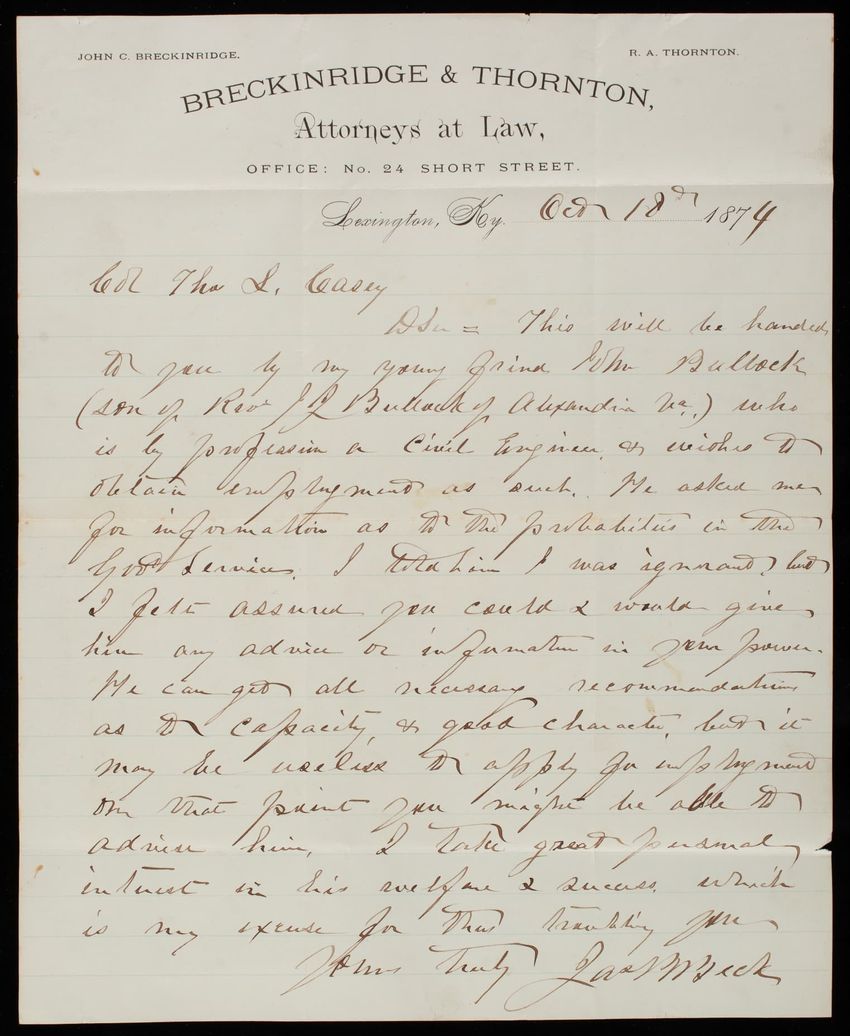 JOHN C. BRECKINRIDGE. R. A. THORNTON.
BRECKINRIDGE & THORNTON,
Attorneys at Law,
OFFICE: No. 24 SHORT STREET.
Lexington, Ky. Oct 18th 1874
Col Tho L. Casey
D Sir = This will be handed
to you by my young friend John Bullock
(son of Revd J J Bullock of Alexandria Va.) who
is by profession a Civil Engineer, & wishes to
obtain employment as such. He asked me
for information as to the probabilities in the
Govt Service. I told him I was ignorant, but
I felt assured you could & would give
him any advice or information in your power.
He can get all necessary recommendations
as to capacity, & good character, but it
may be useless to apply for employment
on that point you might be able to
advise him. I take great personal
interest in his welfare & success, which
is my excuse for thus troubling you
Yours truly Jas B Beck